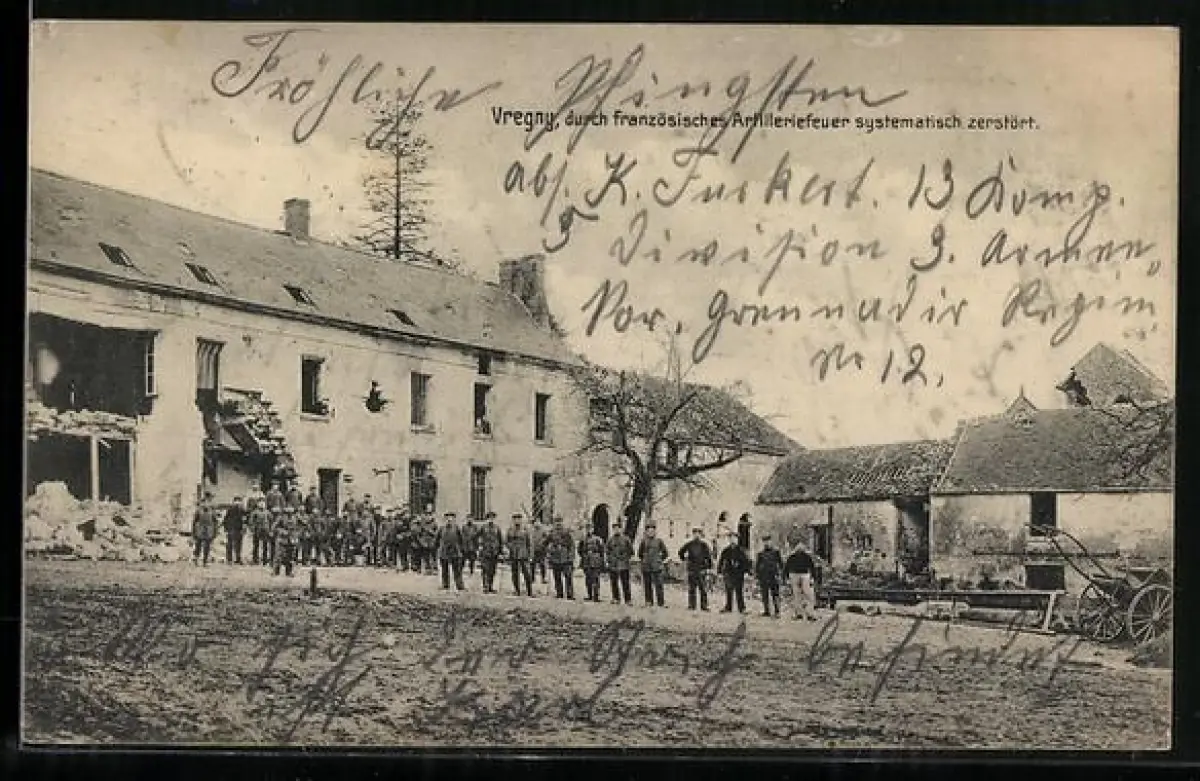 Fröhliche Pfingsten
Vregny, durch französisches Artilleriefeuer systematisch zerstört.
abs. K. Funkert. 13 Komp.
5 Division 3. Armee,
Grennadir Regim
No 12.
Wo sich der befindet